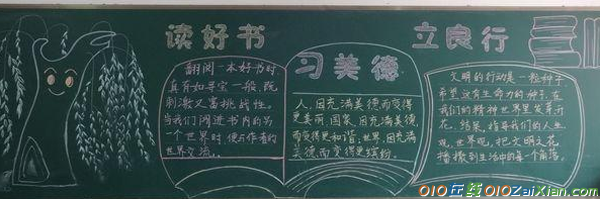 读好书
翻阅一本好书时
真有如寻宝一般，既
刺激又富挑战性。
当我们阅进书内的另
一个世界时，便与作者的
世界交流。
习美德
人，因充满美德而变得
更美丽，国家，因充满美德
而变得更和谐，世界，因充满
美德，而变得更缤纷。
立良行
文明的行动是一粒种子
希望这有生命力的种子，在
我们的精神世界里发芽开
花、结果，指导我们的人生
观、世界观，把文明之花
播撒到生活中的每一个角落。
010在线 010ZaiXian.com